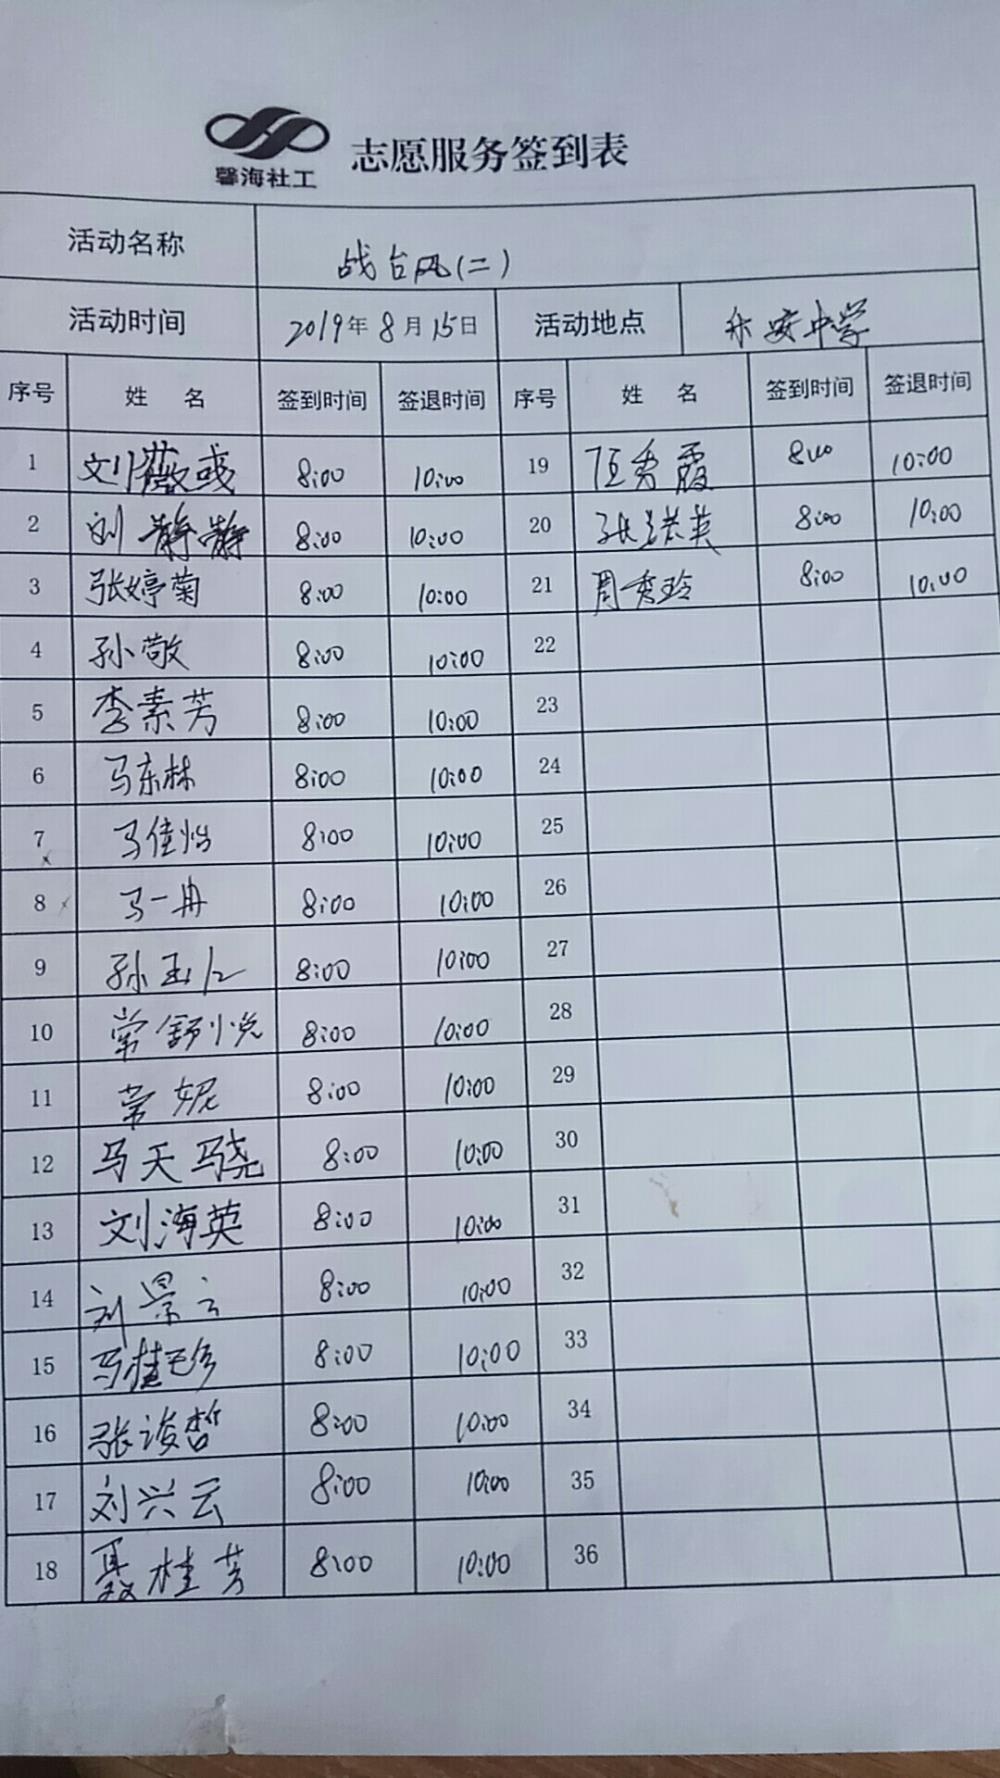 馨海社工 志愿服务签到表
活动名称 战台风(二)
活动时间 2019年8月15日 活动地点 永安中学
序号 姓名 签到时间 签退时间 序号 姓名 签到时间 签退时间
1 刘薇 8:00 10:00 19 伍秀霞 8:00 10:00
2 刘静静 8:00 10:00 20 张美英 8:00 10:00
3 张婷菊 8:00 10:00 21 周秀玲 8:00 10:00
4 孙敬 8:00 10:00 22
5 李素芳 8:00 10:00 23
6 马东林 8:00 10:00 24
7 马佳怡 8:00 10:00 25
8 马一冉 8:00 10:00 26
9 孙玉仁 8:00 10:00 27
10 常舒悦 8:00 10:00 28
11 常妮 8:00 10:00 29
12 马天骁 8:00 10:00 30
13 刘海英 8:00 10:00 31
14 刘景云 8:00 10:00 32
15 马桂珍 8:00 10:00 33
16 张浚哲 8:00 10:00 34
17 刘兴云 8:00 10:00 35
18 聂桂芳 8:00 10:00 36